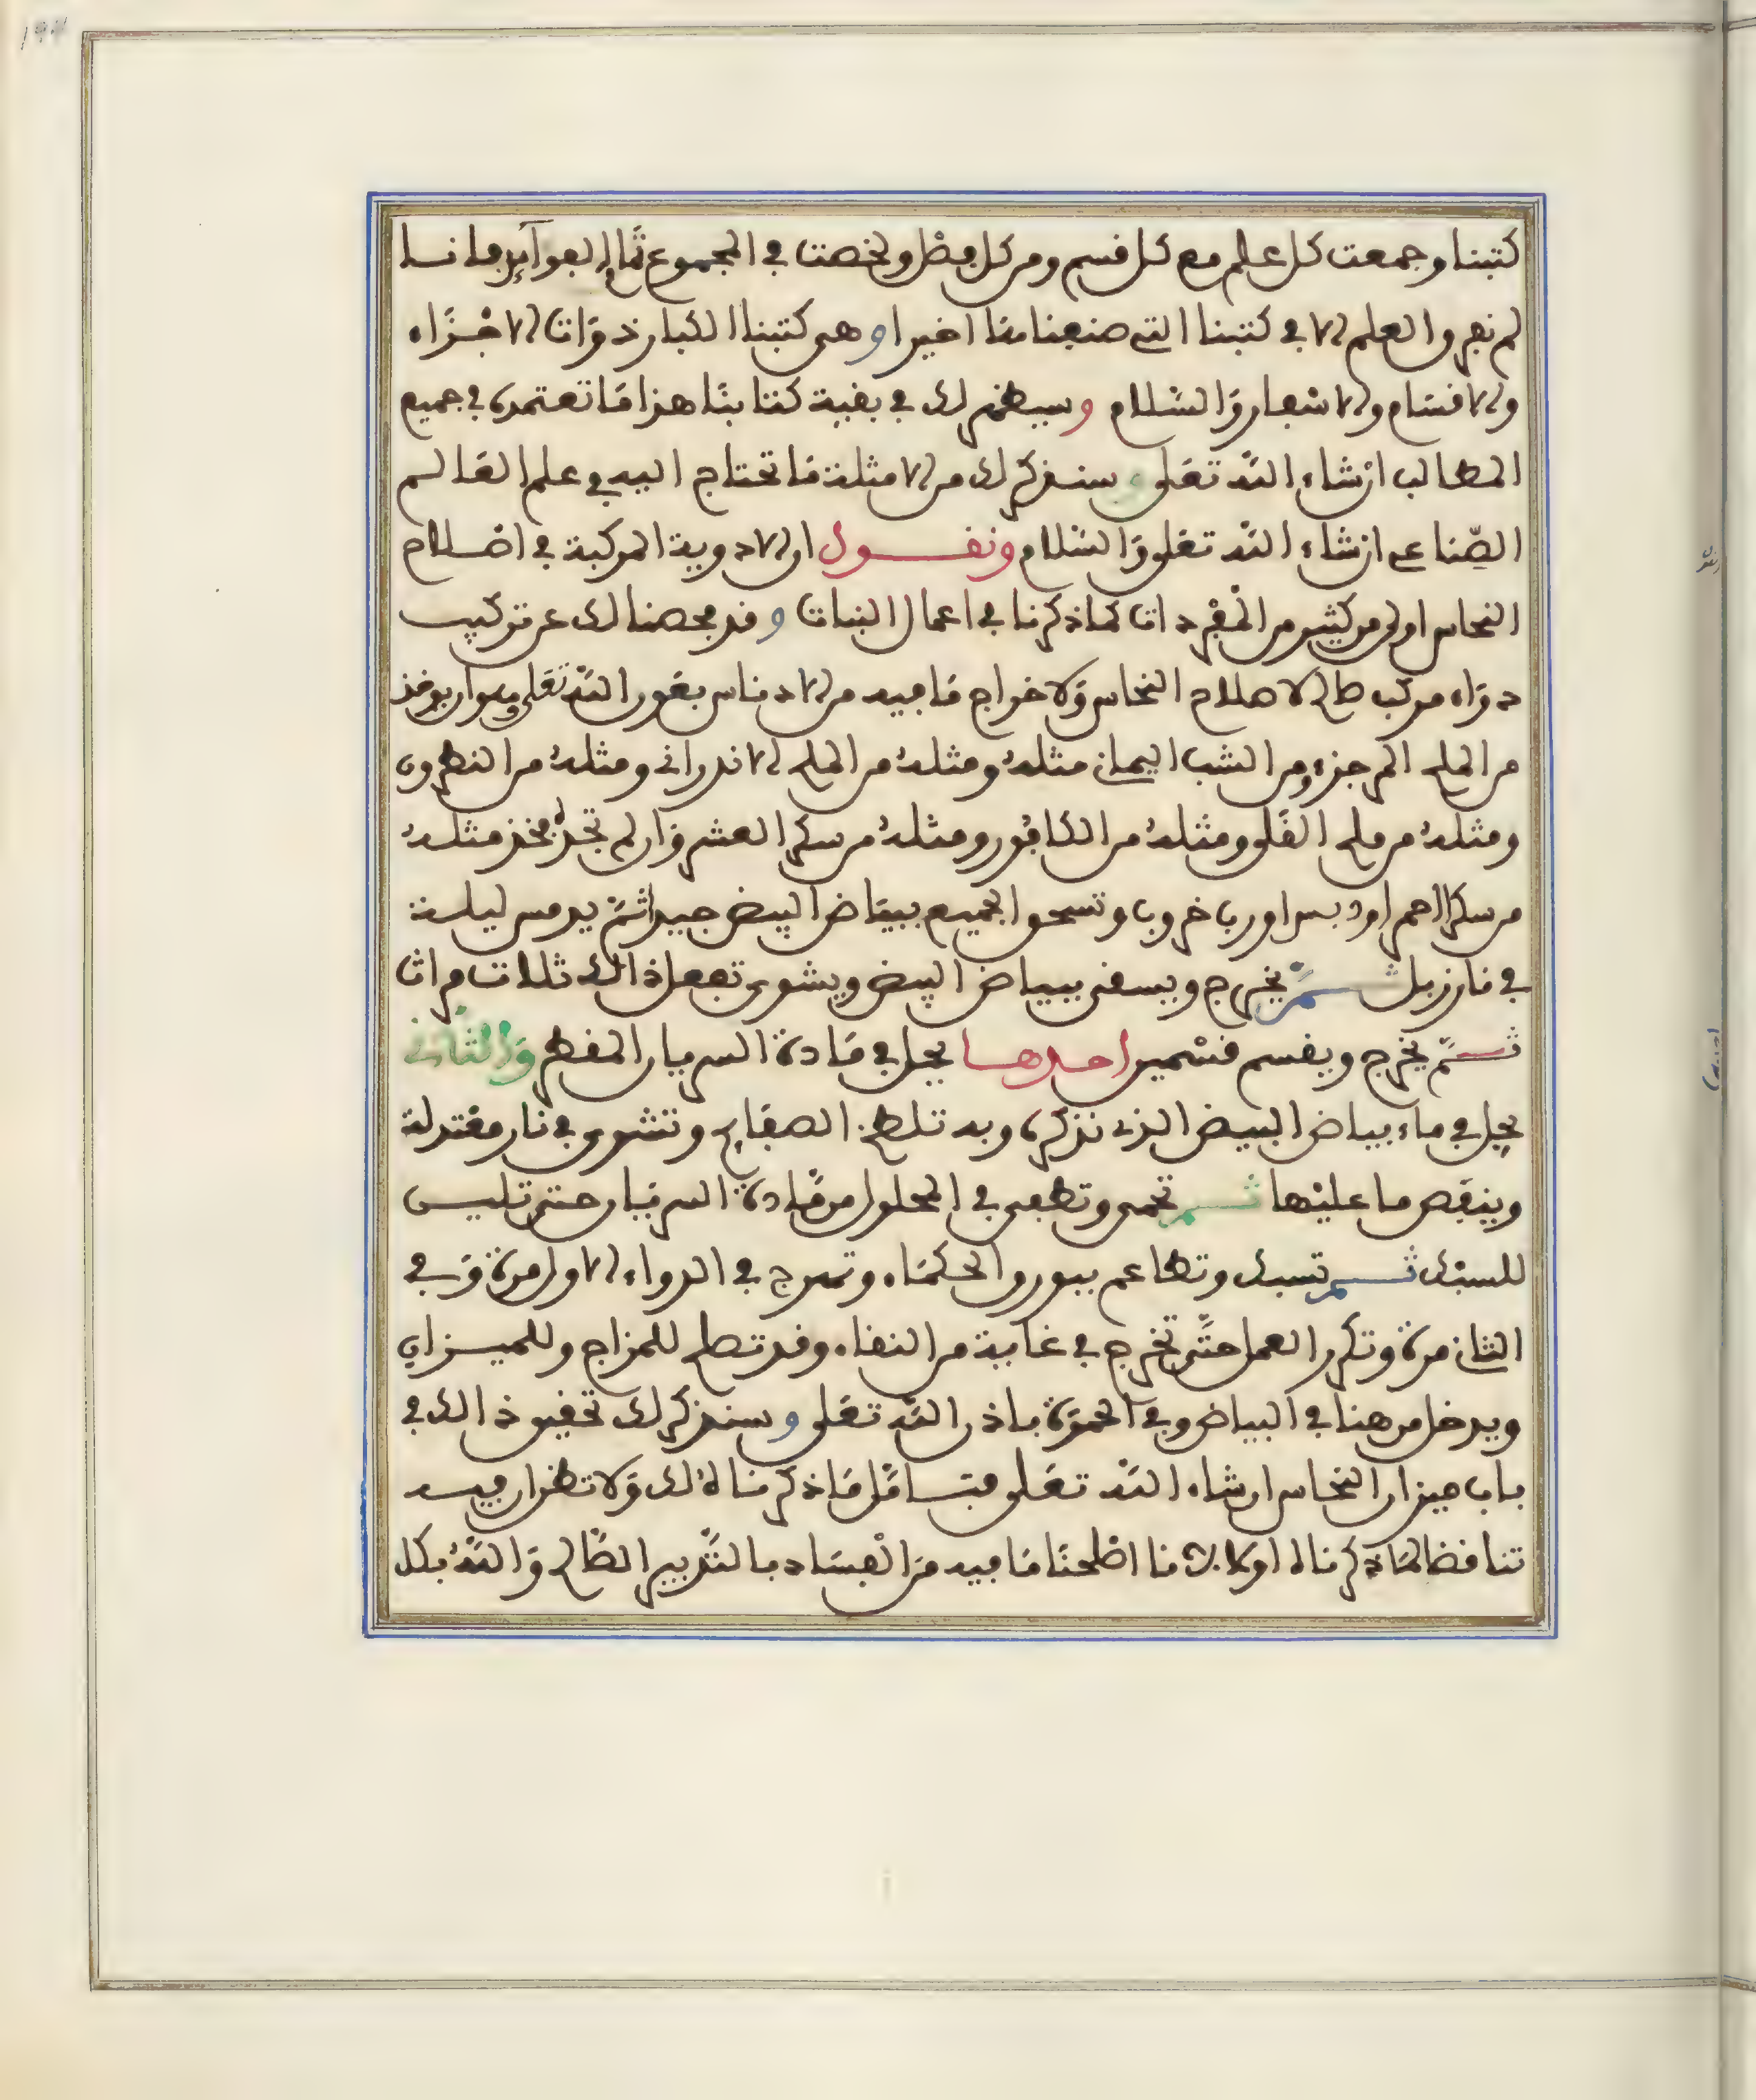 كتبنا وجمعت كل علم مع كل قسم ومن كل فصل ولخصت في المجموع تمام الفوآيد فاننا
لم نفرق العلم الا في كتبنا التي صنعنا منا اخيرا وهي كتبنا الكبار ذوات الاجزاء
والاقسام والاسفار والسلام وسيظهر لك في بقية كتابنا هذا ما تعتمده في جميع
المطالب ان شاء الله تعلى وسنذكر لك من الامثلة ما تحتاج اليه في علم العالم
الصناعي ان شاء الله تعلى والسلام ونقول ان الادوية المركبة في اصلاح
النحاس اولى من كثير من المفردات كما ذكرنا في اعمال النبات وقد فحصنا لك عن تركيب
دواء مركب صالح لاصلاح النحاس ولاخراج ما فيه من الادناس بعون الله تعلى وهو ان يوخذ
من الملح المر جزء ومن الشب اليماني مثله ومثله من الملح الاندراني ومثله من النطرون
ومثله من ملح القلي ومثله من الكافور ومثله من سكر العشر وان لم تجده فخذ مثله
من سكر احمر او دبس او رب خروب وتسحق الجميع ببياض البيض جيدا ثم يدمس ليلة
في نار زبل ثم يخرج ويسقى ببياض البيض ويشوى تفعل ذالك ثلاث مرات
ثم يخرج ويقسم قسمين احدها يحل في مادة السرفيان المقطر والثاني
يحل في ماء بياض البيض الذي نذكره وبه تلطخ الصفايح وتشوى في نار معتدلة
وينفض ما عليها ثم تحمى وتطفى في المحلول من مادة السرفيان حتى تليس
للسبك ثم تسبك وتطاعم ببورق الحكماء وتفرج في الدواء الاول مرة وفي
الثاني مرة وتكرر العمل حتى تخرج في غاية من النقاء وقد تصلح للمزاج وللميزان
ويدخل من هنا في البياض وفي الحمرة باذن الله تعلى وسنذكر لك تحقيق ذالك في
باب ميزان النحاس ان شاء الله تعلى فتامل ما ذكرناه لك ولا تظن ان فيه
تناقضا لما ذكرناه اولا لاننا اصلحنا ما فيه من الفساد بالتدبير الصالح والله بكل